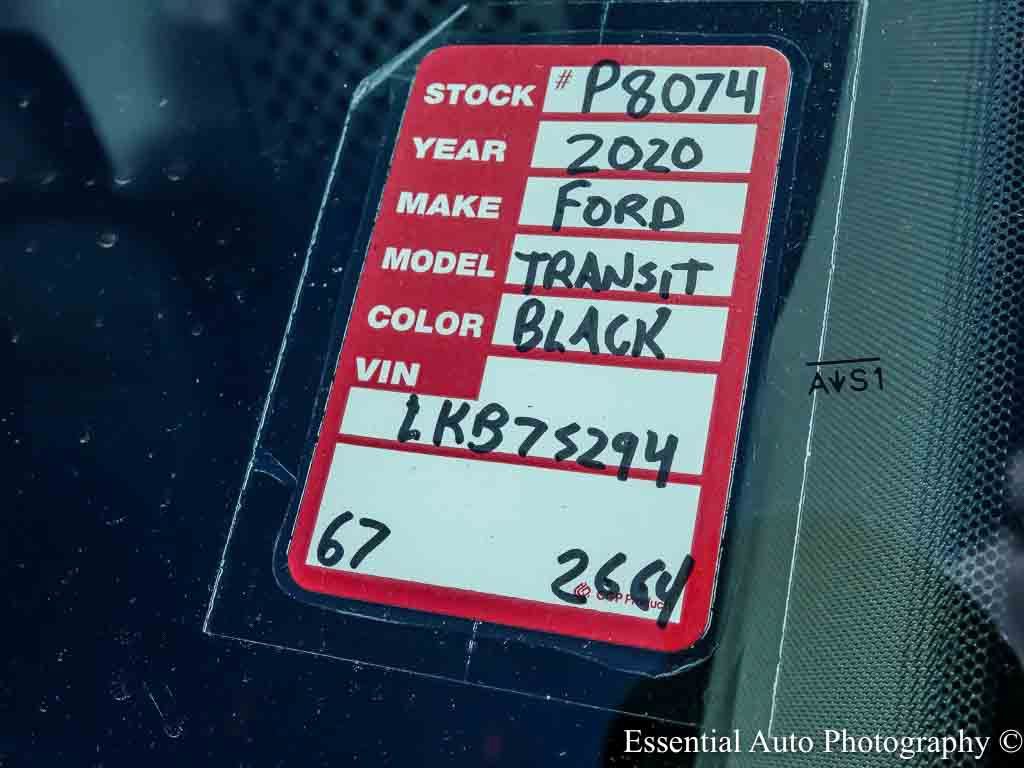 STOCK # P8074
YEAR 2020
MAKE FORD
MODEL TRANSIT
COLOR BLACK
VIN
LKB75294
67 2664
Product
AS1
Essential Auto Photography ©